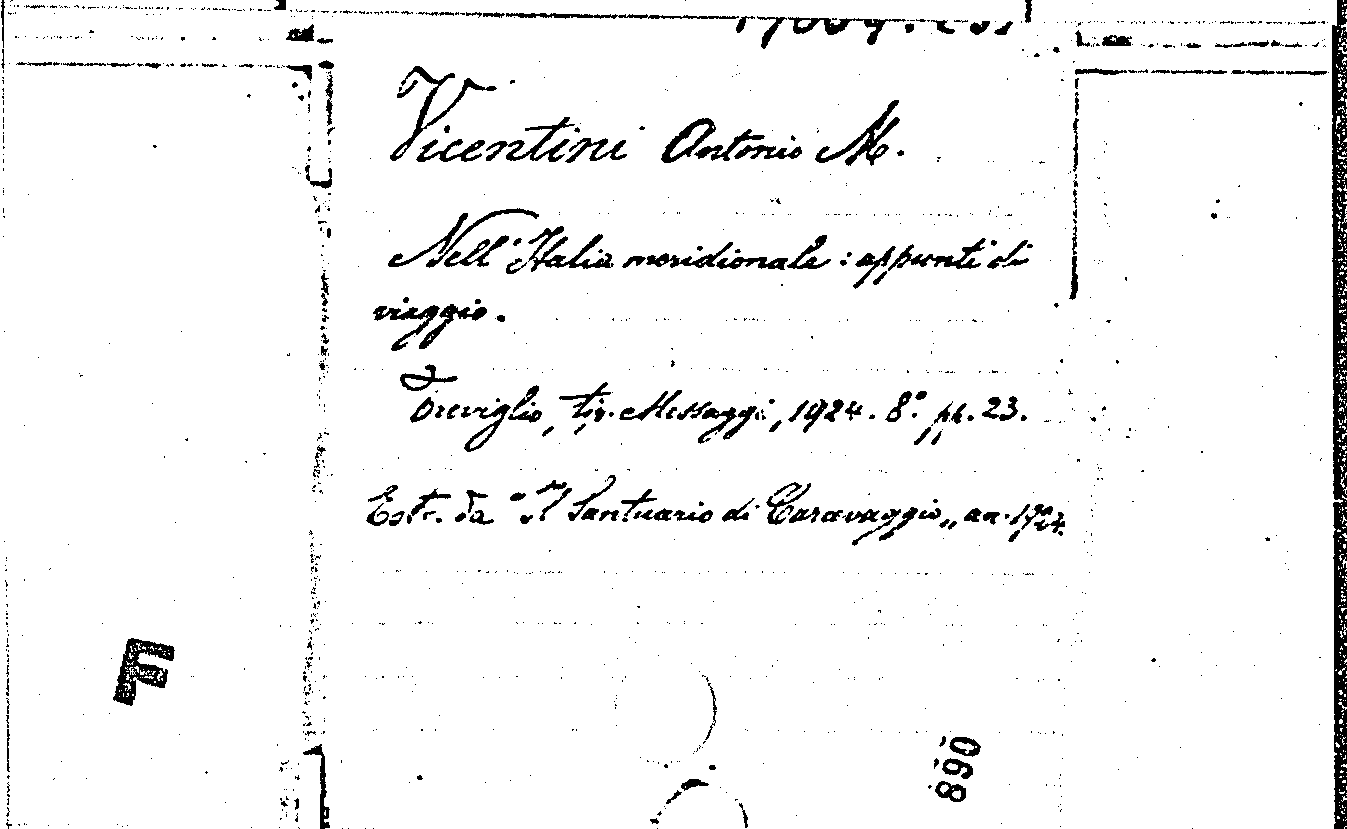 Vicentini Antonio M.
Nell'Italia meridionale : appunti di
viaggio.
Treviglio, tip. Messaggi, 1924. 8° pp. 23.
Estr. da "Il Santuario di Caravaggio„ an. 1924.
F
890